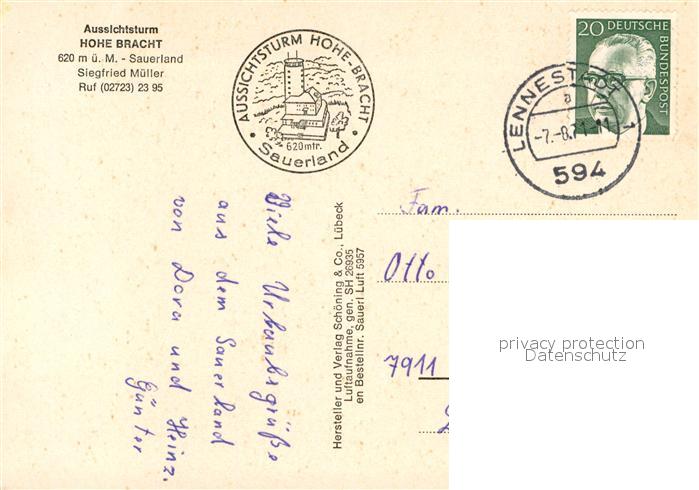 Aussichtsturm
HOHE BRACHT
620 m ü. M. - Sauerland
Siegfried Müller
Ruf (02723) 23 95
AUSSICHTSTURM HOHE-BRACHT
620mtr.
Sauerland
20 DEUTSCHE
BUNDESPOST
LENNESTADT 1
a
594
Viele Urlaubsgrüße
aus dem Sauerland
von Dora und Heinz.
Günter
Hersteller und Verlag Schöning & Co., Lübeck
Luftaufnahme, gen. SH 26935
en Bestellnr. Sauerl Luft 5957
Fam.
Otto
7911
privacy protection
Datenschutz